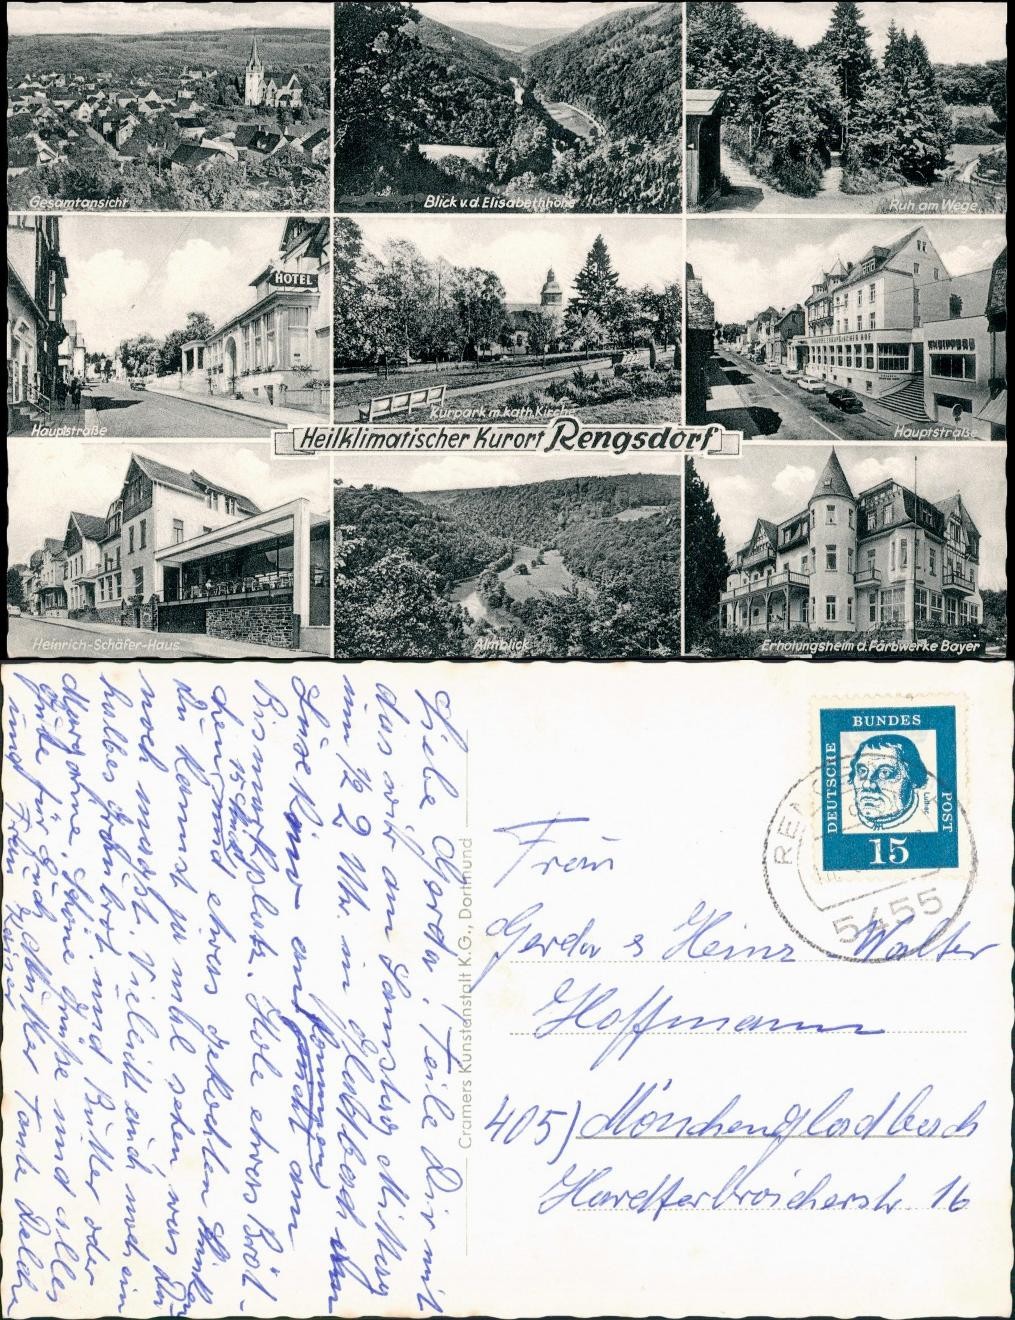 Gesamtansicht
Blick v. d. Elisabethhöhe
Ruh am Wege
HOTEL
Hauptstraße
Kurpark m. kath. Kirche
Hauptstraße
Heilklimatischer Kurort Rengsdorf
Heinrich-Schäfer-Haus
Almblick
Erholungsheim d. Farbwerke Bayer
Liebe Gerda! Teile Dir mit
das wir am Samstag Mittag
um 1/2 2 Uhr in Gladbach
ankommen
Hole etwas Brot
15 Schnitt
und etwas gekochten Schinken
Du kannst ja mal sehen, was Du
noch magst. Vieleicht auch noch ein
halbes Graubrot, und Butter oder
Margarine. Schöne Grüße und alles
Gute für Euch Mutter Tante Delchen
und Frau
Cramers Kunstanstalt K.G., Dortmund
DEUTSCHE BUNDESPOST
Luther
15
5455
Frau
Gerda & Heinz Walter
Hoffmann
405) Mönchengladbach
Hardterbroicherstr. 16